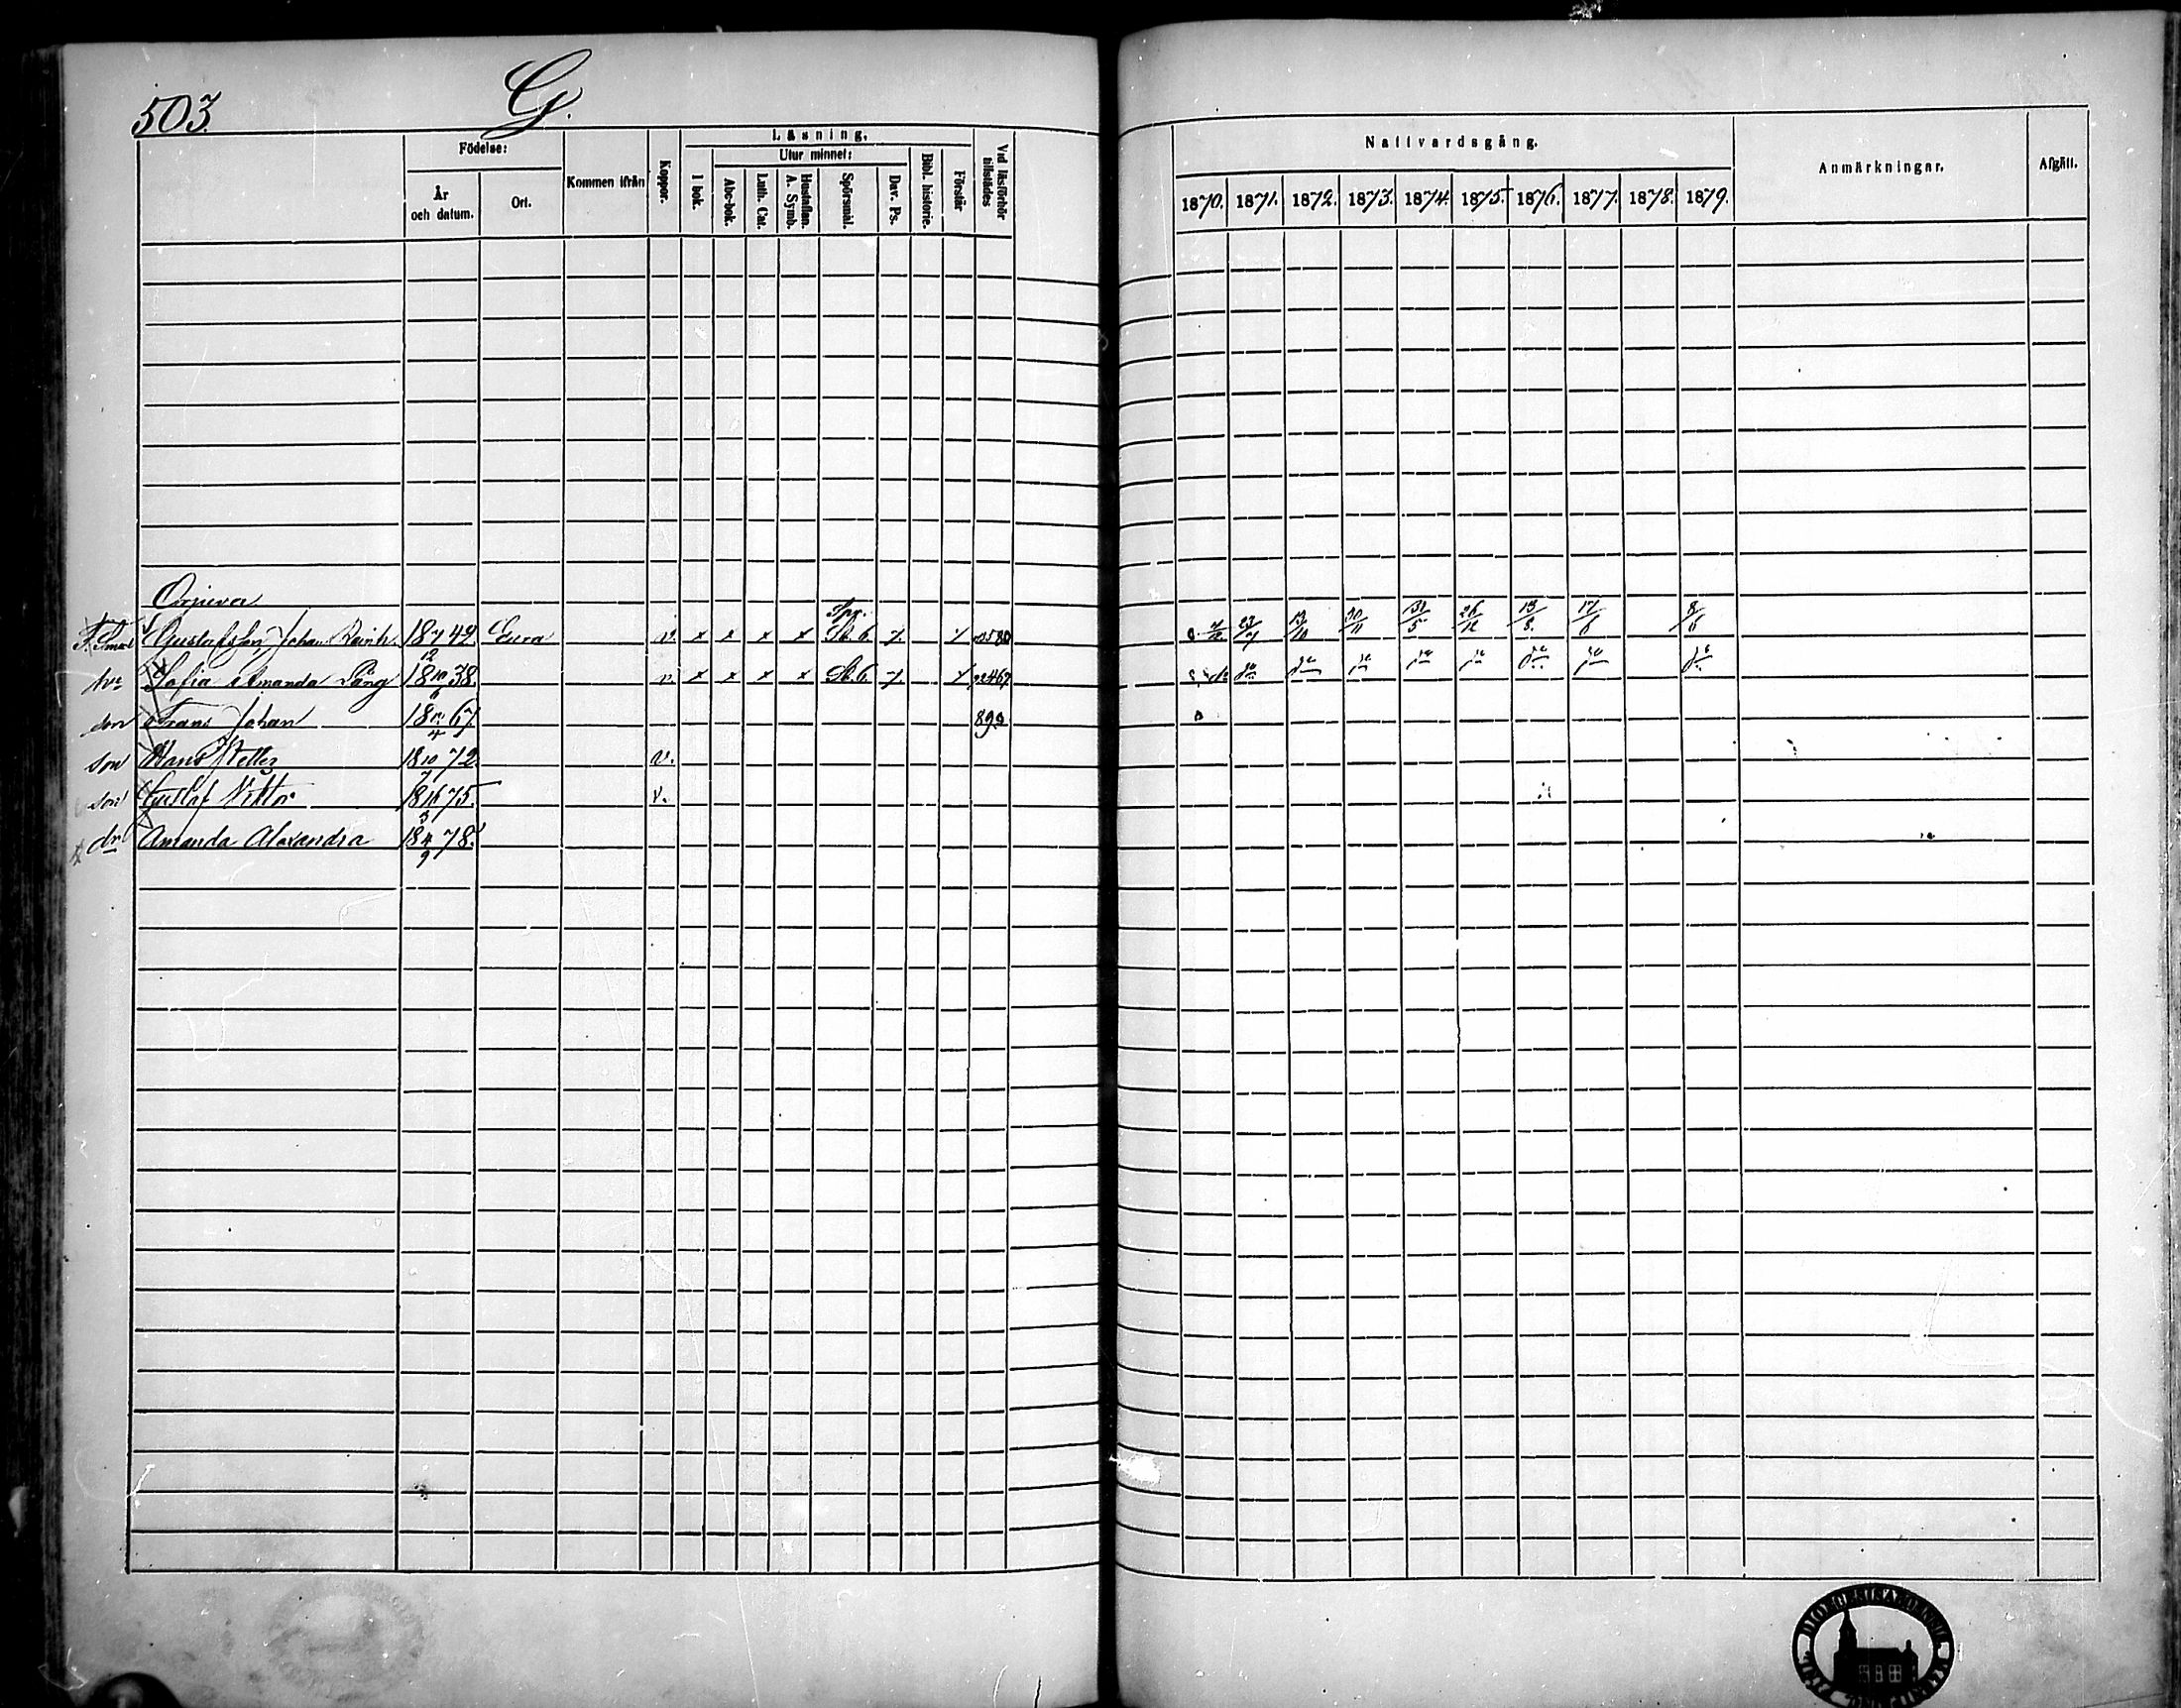 503. G.
Födelse: År och datum. Ort. Kommen ifrån Koppor. Läsning. I bok. Utur minnet: Abc-bok. Luth. Cat. Hustaflan. A. Symb. Spörsmål. Dav. Ps. Bibl. historie. Förstår Vid läsförhör tillstädes
Nattvardsgång. 1870. 1871. 1872. 1873. 1874. 1875 1876. 1877. 1878. 1879. Anmärkningar. Afgått.
Spr.
Gustafsson, Johan Reinh. 18 7/12 42. Eura v. x x x x St. 6 7/12 23/7 13/10 30/11 31/5 26/12 13/8. 17/6 8/6
hu Sofia Amanda Lång 18 10/6 38. v. x x x x St. 6 do do do do do do do do do
son Frans Johan 18 /4 67.
son Hans 18 10/7 72 v.
son Gustaf Viktor 18 16/3 75. v.
dr Amanda Alexandra 18 4/9 78.